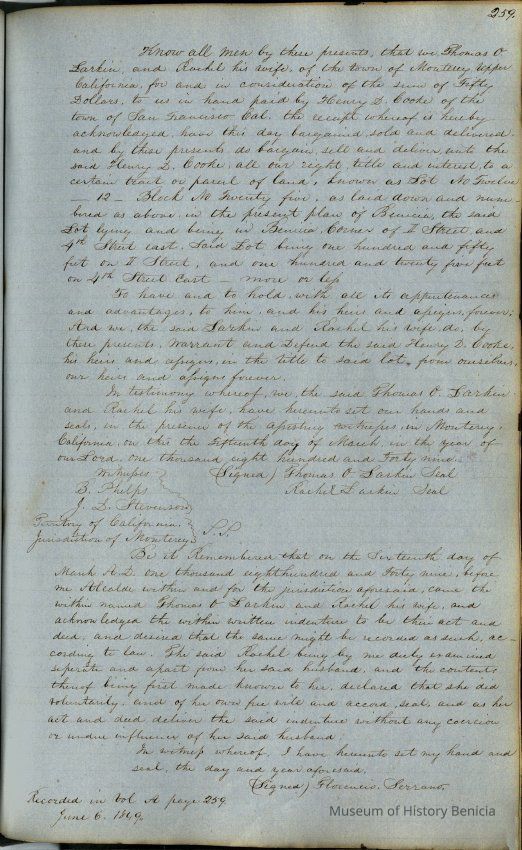 259.
Know all men by these presents, that we Thomas O
Larkin, and Rachel his wife, of the town of Monterey Upper
California, for and in consideration of the sum of Fifty
Dollars, to us in hand paid by Henry D. Cooke of the
town of San Francisco Cal. the receipt whereof is hereby
acknowledged, have this day bargained, sold and delivered
and by these presents do bargain, sell and deliver, unto the
said Henry D. Cooke, all our right, title and interest, to a
certain tract or parcel of land, known as Lot No Twelve
— 12 — Block No Twenty five, as laid down and num-
bered as above, in the present plan of Benicia, the said
Lot lying and being in Benicia, Corner of I Street and
4th Street east, Said Lot being one hundred and fifty
feet on I Street, and one hundred and twenty five feet
on 4th Street East — more or less
To have and to hold, with all its appurtenances
and advantages, to him, and his heirs and assigns, forever;
And we the said Larkin and Rachel his wife do, by
these presents, Warrant and Defend the said Henry D. Cooke,
his heirs and assigns, in the title to said lot, from ourselves,
our heirs and assigns forever.
In testimony whereof, we, the said Thomas O. Larkin
and Rachel his wife, have hereunto set our hands and
seals, in the presence of the witnesses, in Monterey,
California, on this the Fifteenth day of March, in the year of
our Lord, one thousand eight hundred and forty nine.
Witnesses (Signed) Thomas O Larkin Seal
B. Phelps Rachel Larkin Seal
J. D. Stevenson
Territory of California
Jurisdiction of Monterey S.S.
Be it Remembered that on the Sixteenth day of
March A.D. one thousand eighthundred and Forty nine, before
me Alcalde within and for the jurisdiction aforesaid, came the
within named Thomas O Larkin and Rachel his wife, and
acknowledged the within written indenture to be their act and
deed, and desired that the same might be recorded as such, ac-
cording to law. The said Rachel being by me duly examined
seperate and apart from her said husband, and the contents
thereof being first made known to her, declared that she did
voluntarily, and of her own free will and accord, seal, and as her
act and deed, deliver the said indenture without any coercion
or undue influence of her said husband:
In witness whereof, I have hereunto set my hand and
seal, the day and year aforesaid.
(Signed) Florencio Serrano.
Recorded in Vol A page 259
June 6. 1849.
Museum of History Benicia